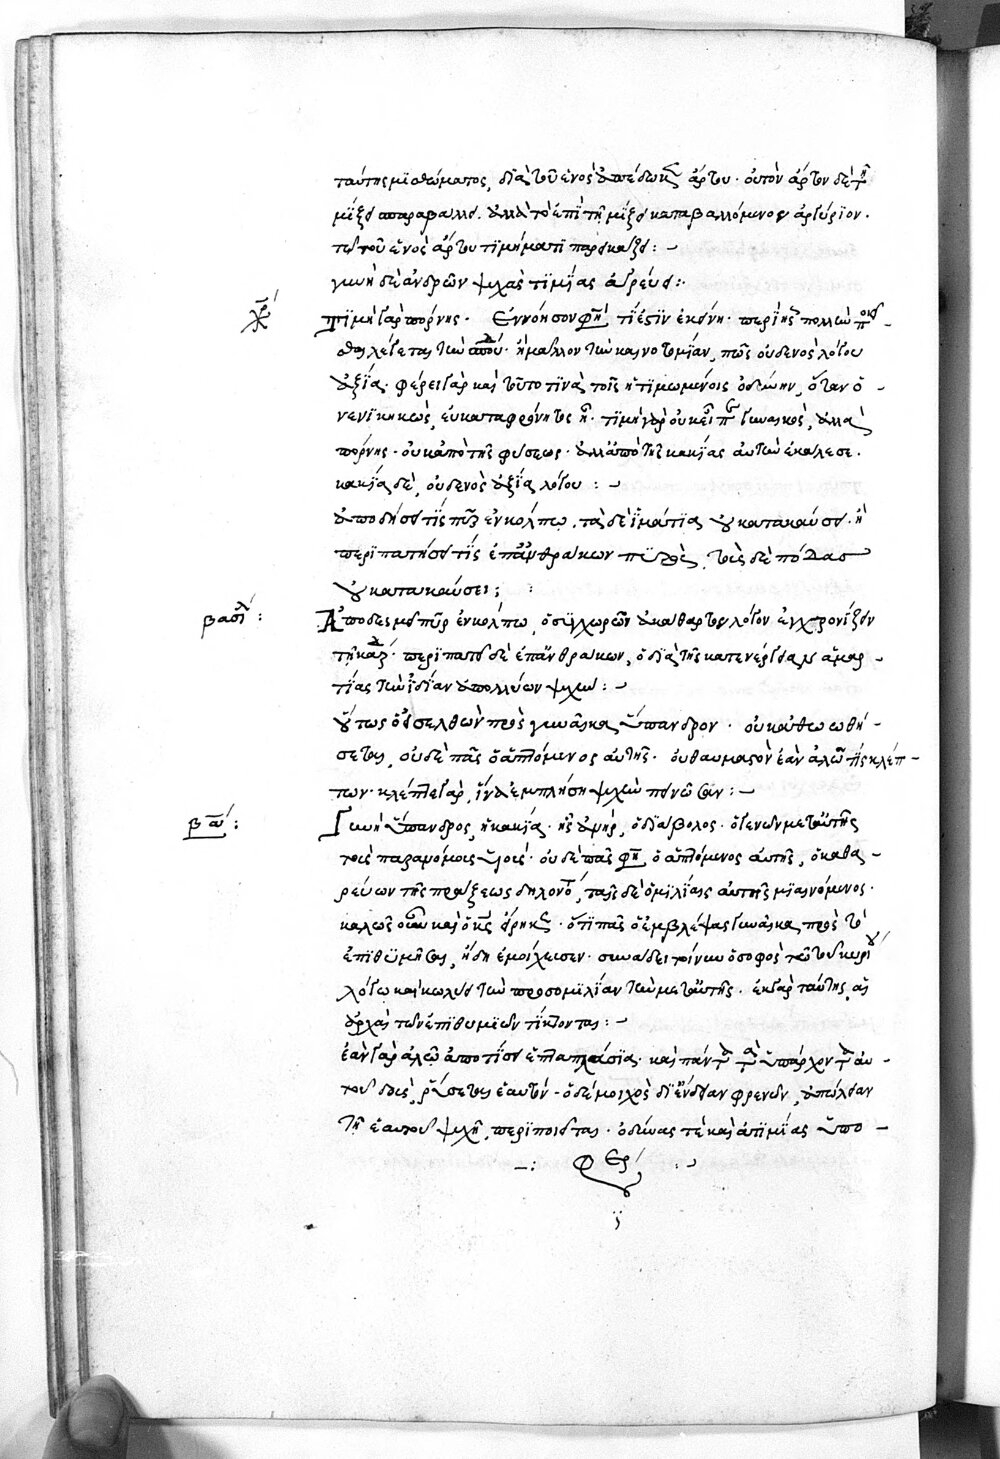 ταύτης μισθώματος, διὰ τοῦ ἑνὸς ἀπέδωκεν ἄρτου· οὐ τὸν ἄρτον δὲ τῆ
μίξει παραβάλλει. ἀλλὰ τὸ ἐπὶ τῆ μίξει καταβαλλόμενον ἀργύριον.
τῶ τοῦ ἑνὸς ἄρτου τιμήματι παρεικάζει :
γυνὴ δὲ ἀνδρῶν ψυχὰς τιμίας ἀγρεύει :
χρ
Τιμὴ γὰρ πόρνης· ἐννόησον φησὶ τί ἐστιν ἐκείνη· περὶ ἧς πολλῶν
λέγεται τῶν· ἢ μᾶλλον τῶν καινοτομιῶν, πῶς οὐδενὸς λόγου
ἀξία· φέρει γὰρ καὶ τοῦτό τινα τοῖς ἠτιμωμένοις ὀδύνην, ὅταν ὁ
νενικηκὼς, εὐκαταφρόνητος ἦ· τιμὴ γὰρ οὐκ εἶπε γυναικὸς, ἀλλὰ
πόρνης· οὐκ ἀπὸ τῆς φύσεως· ἀλλ' ἀπὸ τῆς κακίας αὐτὴν ἐκάλεσε.
κακία δὲ, οὐδενὸς ἀξία λόγου :
ἀποδήσει τὶς πῦρ ἐν κόλπω, τὰ δὲ ἱμάτια οὐ κατακαύσει· ἢ
περιπατήσει τὶς ἐπ' ἀνθράκων πυρὸς, τοὺς δὲ πόδας
οὐ κατακαύσει ; :
βασιλ :
Ἀποδεσμεῖ πῦρ ἐν κόλπω, ὁ συγχωρῶν ἀκάθαρτον λόγον ἐγχρονίζειν
τῆ καρδ· περιπατεῖ δὲ ἐπ' ἀνθράκων, ὁ διὰ τῆς κατ' ἐνέργειαν ἁμαρ-
τίας τὴν ἰδίαν ἀπολλύων ψυχήν :
οὕτως ὁ εἰσελθὼν πρὸς γυναῖκα ὕπανδρον· οὐκ ἀθωωθή-
σεται, οὐδὲ πᾶς ὁ ἁπτόμενος αὐτῆς· οὐ θαυμαστὸν ἐὰν ἁλῶ τὶς κλέπ-
των· κλέπτει γὰρ, ἵνα ἐμπλήση ψυχὴν πεινῶσαν :
βασ :
Γυνὴ ὕπανδρος, ἡ κακία· ἧς ἀνὴρ, ὁ διάβολος· ὁ γεννῶν μετ' αὐτῆς
τοὺς παρανόμους υἱούς· οὐδὲ πᾶς φησὶ ὁ ἁπτόμενος αὐτῆς, ὁ καθα-
ρεύων τῆς πράξεως δηλονότι, ταῖς δὲ ὁμιλίαις αὐτῆς μιαινόμενος.
καλῶς οὖν καὶ ὁ κς εἴρηκεν· ὅτι πᾶς ὁ ἐμβλέψας γυναῖκα πρὸς τὸ
ἐπιθυμῆσαι, ἤδη ἐμοίχευσεν· συνάδει τοίνυν ὁ σοφὸς τῶ τοῦ κυρίου
λόγω καὶ κωλύει τὴν προσομιλίαν τὴν μετ' αὐτῆς. ἐκ γὰρ ταύτης αἱ
ἀρχαὶ τῶν ἐπιθυμιῶν τίκτονται :
ἐὰν γὰρ ἁλῶ ἀποτίσει ἑπταπλάσια· καὶ πάντα τὰ ὑπάρχοντα αὐ-
τοῦ δοὺς, ῥύσεται ἑαυτόν· ὁ δὲ μοιχὸς δι' ἔνδειαν φρενῶν, ἀπώλειαν
τῆ ἑαυτοῦ ψυχῆ περιποιεῖται· ὀδύνας τὲ καὶ ἀτιμίας ὑπο-
φέρει
ϊ